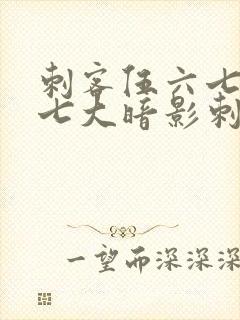 刺客伍六七
七大暗影刺
一望而深深深